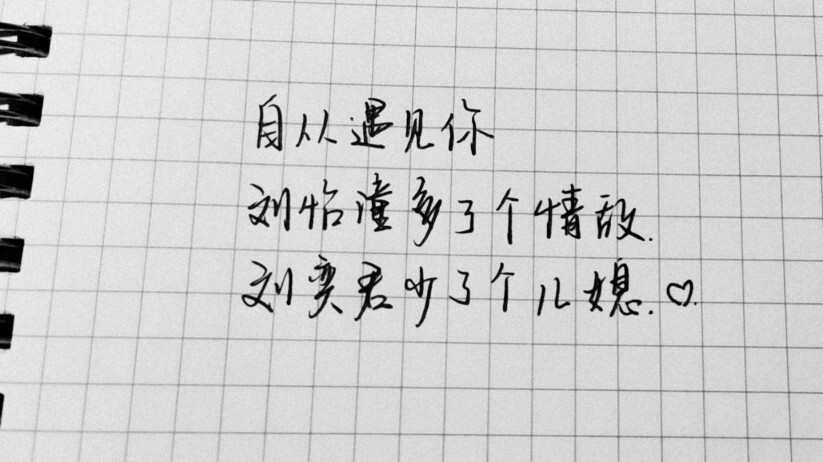 自从遇见你
刘怡潼多了个情敌.
刘奕君少了个儿媳.♡.